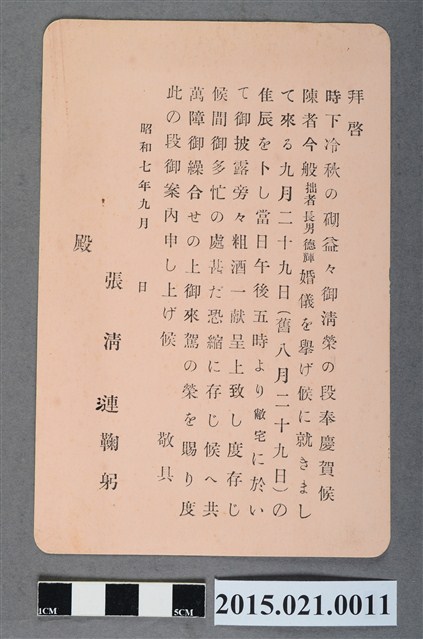 拜啓
時下冷秋の砌益々御淸榮の段奉慶賀候
陳者今般拙者長男德輝婚儀を擧げ候に就きまし
て來る九月二十九日(舊八月二十九日)の
佳辰を卜し當日午後五時より敝宅に於い
て御披露旁々粗酒一献呈上致し度存じ
候間御多忙の處甚だ恐縮に存じ候へ共
萬障御繰合せの上御來駕の榮を賜り度
此の段御案內申し上げ候 敬具
昭和七年九月 日
張淸漣鞠躬
殿
1CM
5CM
2015.021.0011